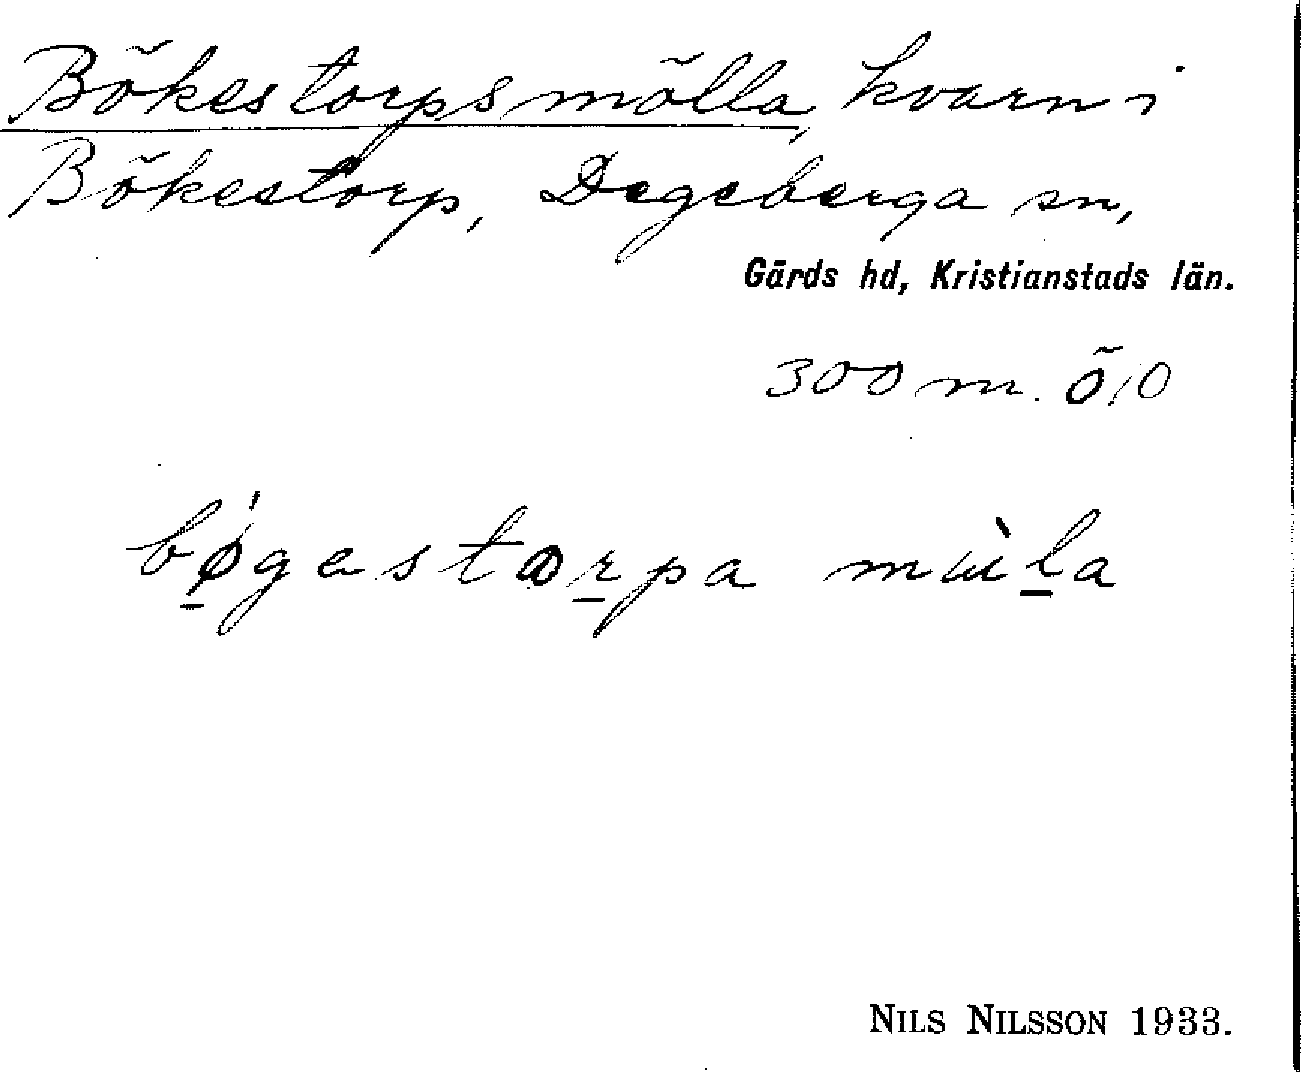 Bökestorpsmölla, kvarn i
Bökestorp, Degeberga sn,
Gärds hd, Kristianstads län.
300 m. Ö/O
bǿ̱gestꝏṟpa mɯ̀ḻa
NILS NILSSON 1933.